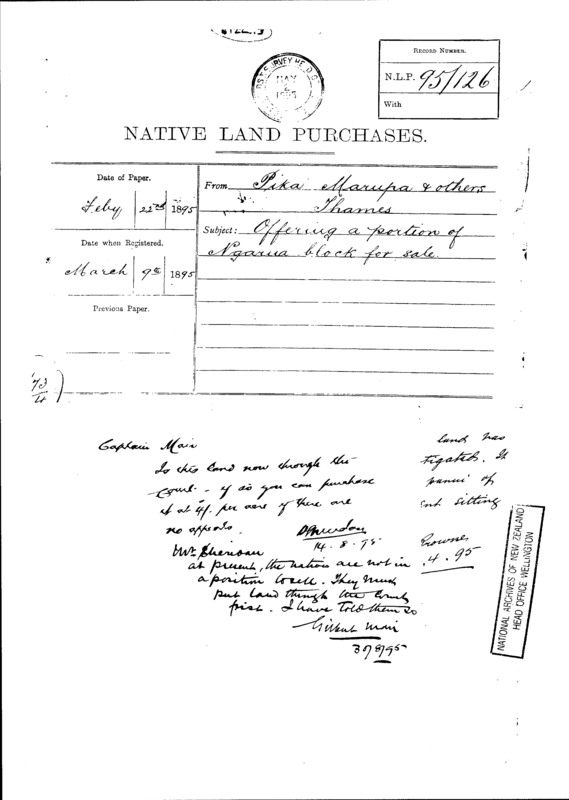 RECORD NUMBER.
N.L.P. 95/126
With
MAY
2
1895
NATIVE LAND PURCHASES.
Date of Paper.
Feby 22nd 1895
Date when Registered.
March 9th 1895
Previous Paper.
From Pika Marupa & others
Thames
Subject: Offering a portion of
Ngarua block for sale.
Captain Mair
Is this land now through the
Court - if so you can purchase
it at 4/. per acre if there are
no appeals.
P Sheridan
14.8.95
Mr. Sheridan
at present, the natives are not in
a position to sell. They must
put land through the Court
first. I have told them so
Gilbert Mair
3/8/95
land has
tigated. It
panui of
sitting
.4.95
NATIONAL ARCHIVES OF NEW ZEALAND
HEAD OFFICE WELLINGTON